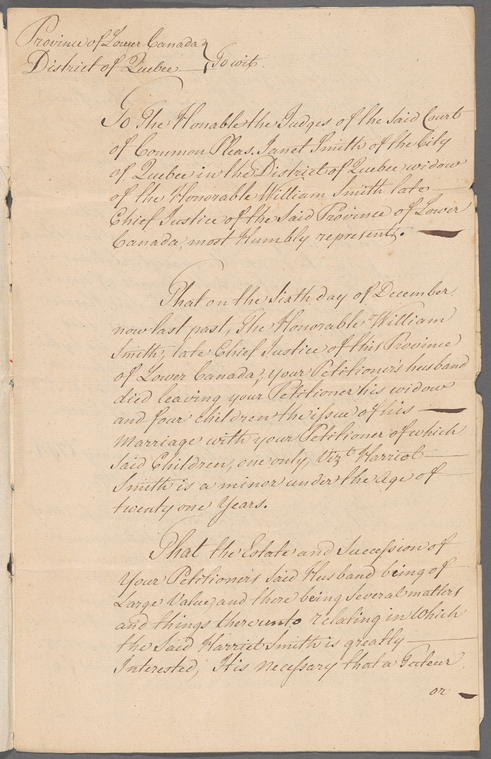 Province of Lower Canada
District of Quebec } To wit.
To The Honable the Judges of the Said Court
of Common Pleas. Janet Smith of the City
of Quebec in the District of Quebec widow
of the Honorable William Smith late
Chief Justice of the Said Province of Lower
Canada, most Humbly represents.
That on the sixth day of December
now last past, The Honorable William
Smith, late Chief Justice of this Province
of Lower Canada, your Petitioner's husband
died leaving your Petitioner his widow
and four Children the issue of his
Marriage with your Petitioner of which
Said Children, one only, Vizt. Harriot
Smith is a minor under the age of
twenty one Years.
That the Estate and Succession of
Your Petitioner's Said Husband being of
Large Value, and there being several matters
and things thereunto relating in Which
the Said Harriet Smith is greatly
Interested, It is necessary that a Tuteur
or